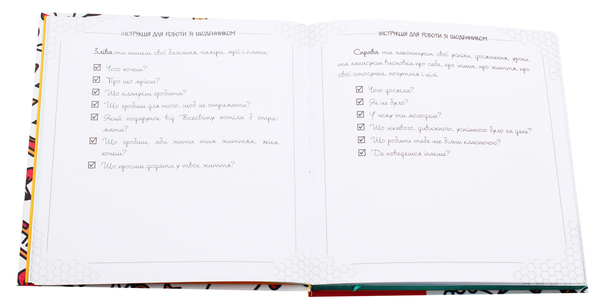 ІНСТРУКЦІЯ ДЛЯ РОБОТИ ЗІ ЩОДЕННИКОМ
Зліва ти пишеш свої бажання, наміри, мрії і плани.
Чого хочеш?
Про що мрієш?
Що плануєш зробити?
Що зробиш для того, щоб це отримати?
Який подарунок від Всесвіту хотіла б отри-
мати?
Що зробиш, аби жити тим життям, яким
хочеш?
Що просиш додати у твоє життя?
ІНСТРУКЦІЯ ДЛЯ РОБОТИ ЗІ ЩОДЕННИКОМ
Справа ти накопичуєш свої успіхи, досягнення, уроки
та записуєш висновки про себе, про інших, про життя, про
свої стосунки, почуття і цілі.
Чого досягла?
Як це було?
У чому ти молодець?
Що цікавого, дивовижного, успішного було за день?
Що робить тебе ще більш класною?
Де поведешся інакше?